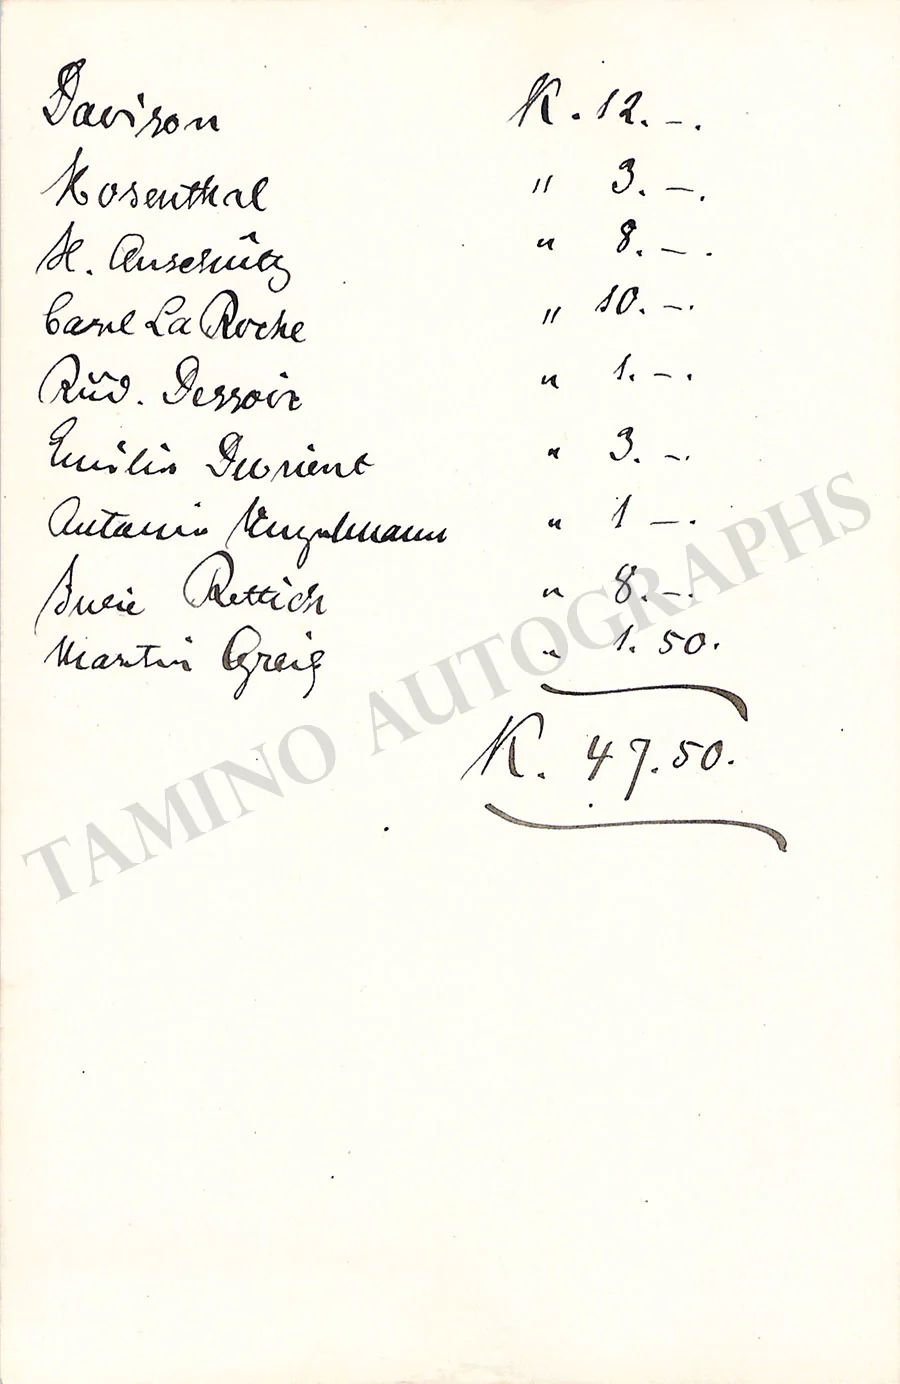 Davison K. 12. –.
Rosenthal " 3. –.
H. Anschütz " 8. – .
Carl La Roche " 10. –.
Rud. Dessoir " 1. – .
Emilie Devrient " 3. –.
Antonie " 1 –.
Julie Rettich " 8. –.
Martin Greif " 1. 50.
K. 47.50.
TAMINO AUTOGRAPHS